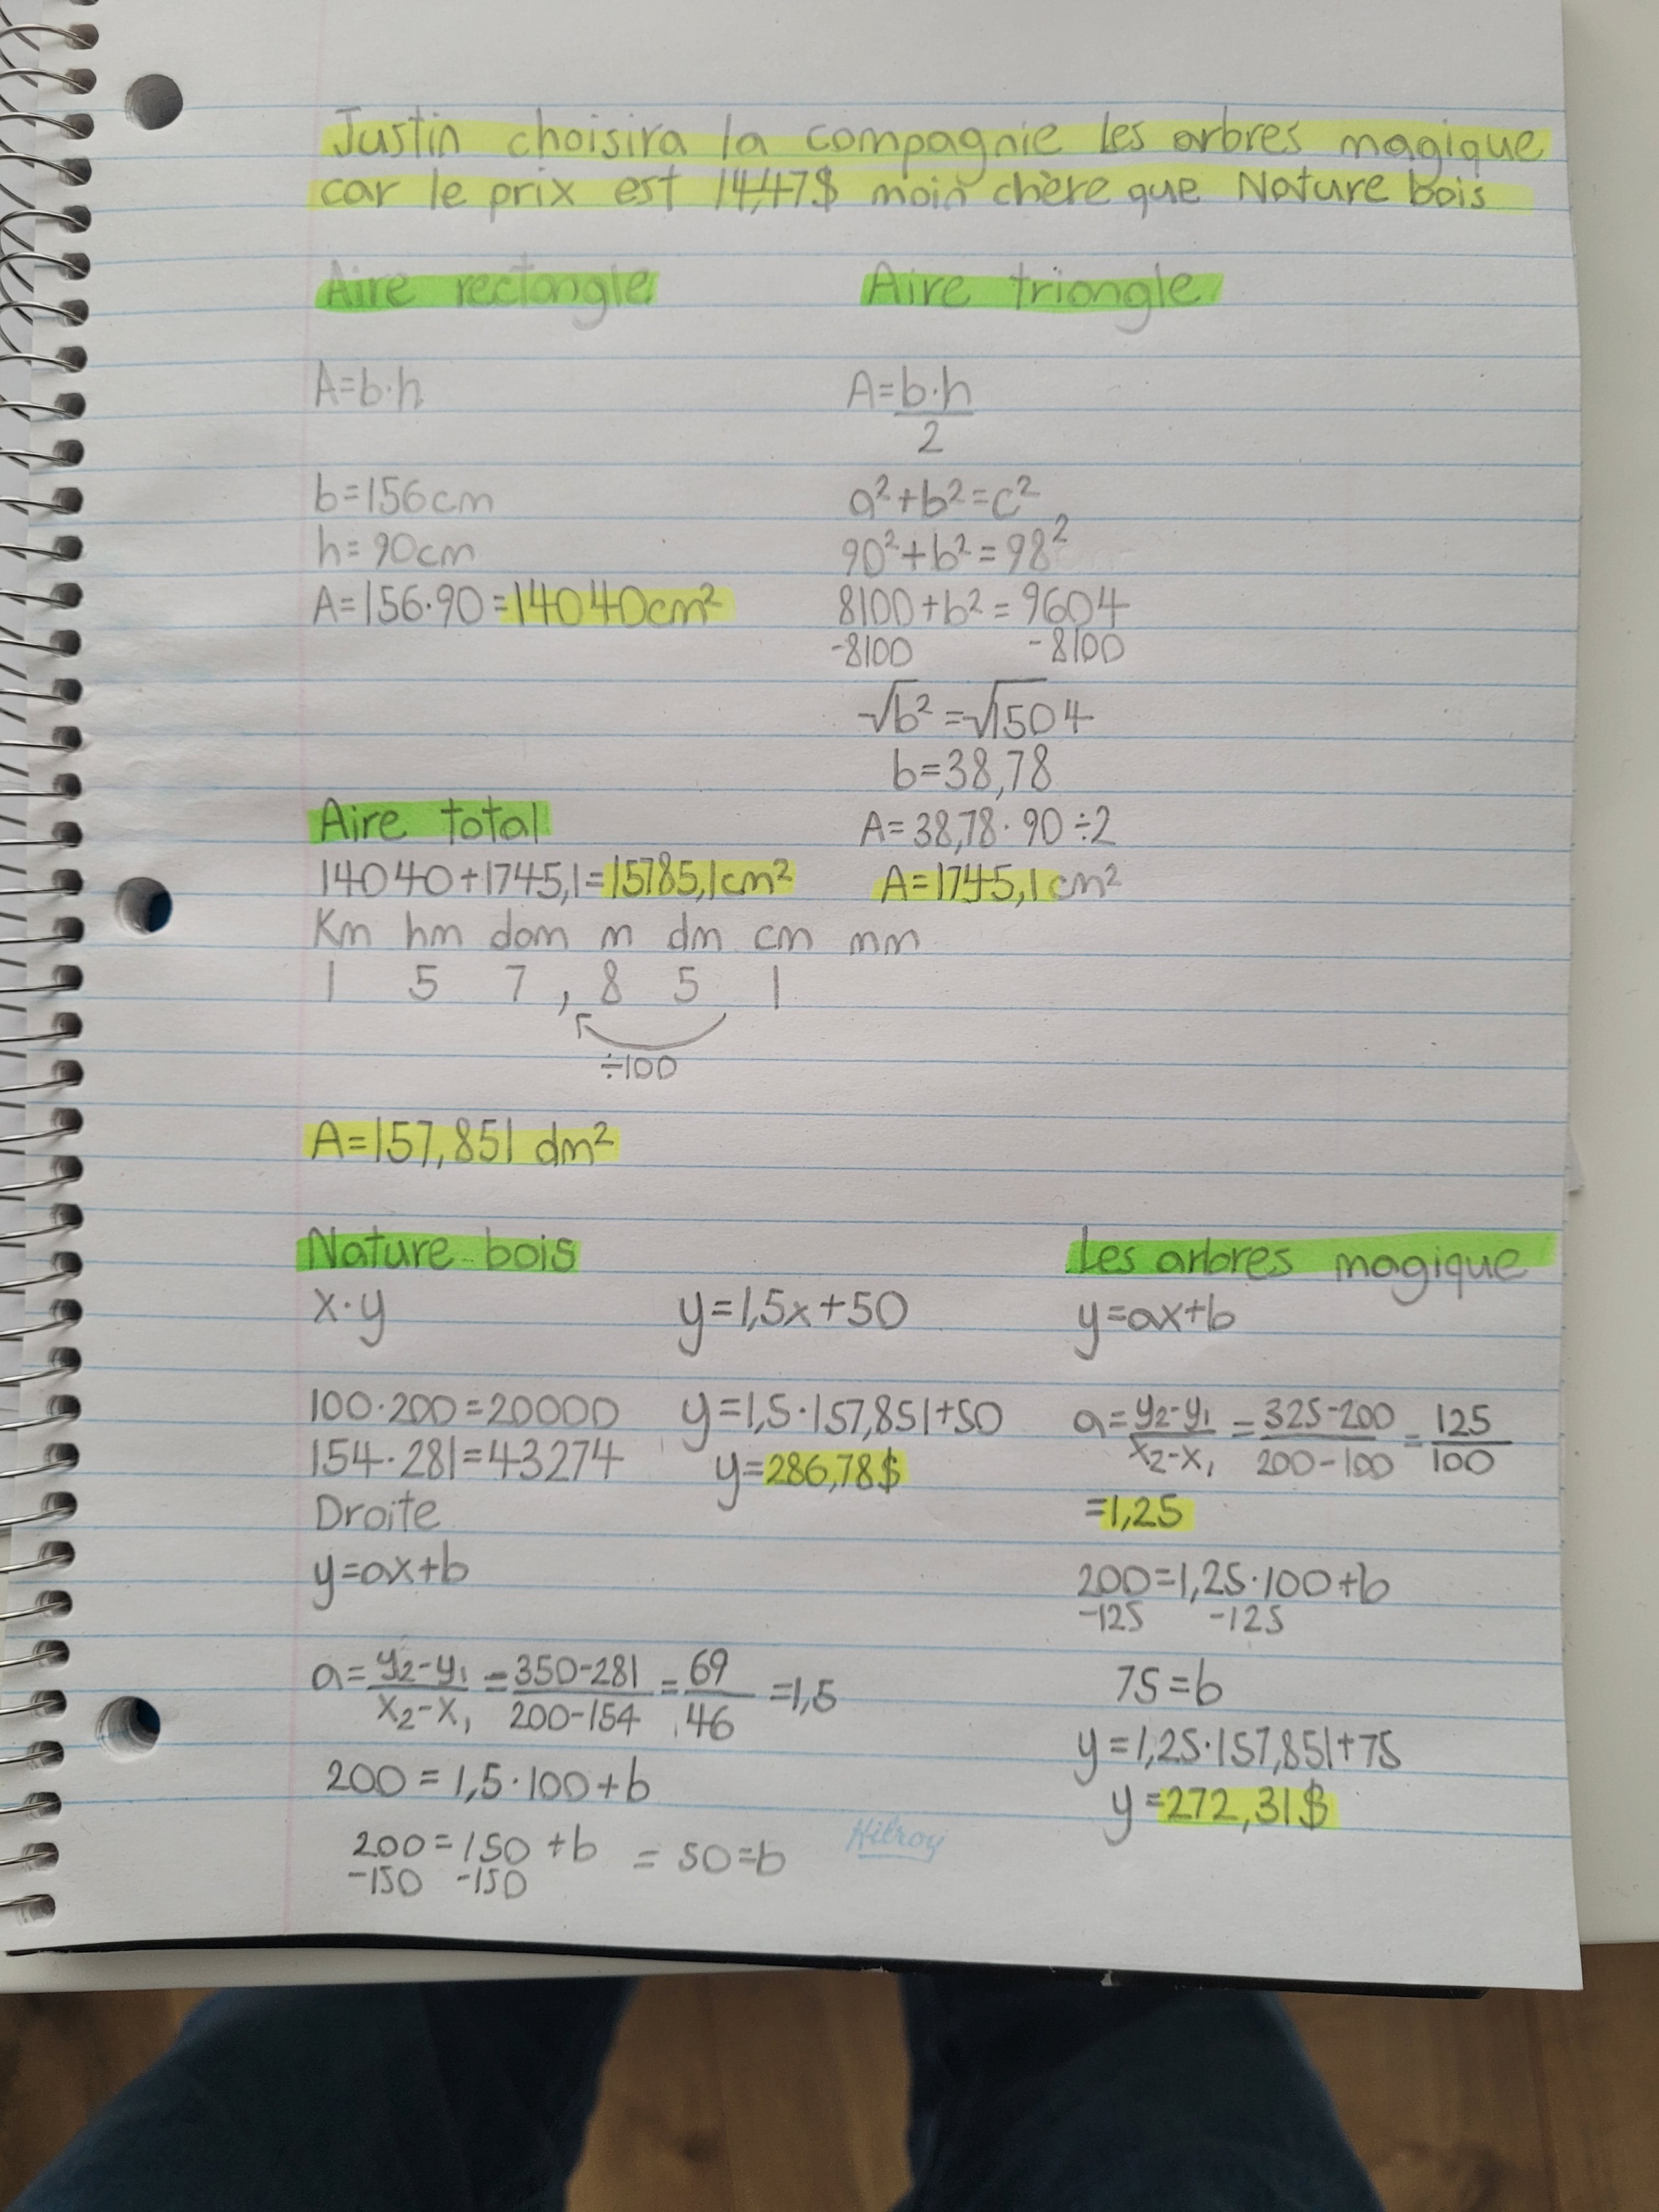 Justin choisira la compagnie Les arbres magique
car le prix est 14,47$ moin chère que Nature bois
Aire rectangle
A=b·h
b=156cm
h=90cm
A=156·90=14040cm²
Aire triangle
A=b·h/2
a²+b²=c²
90²+b²=98²
8100+b²=9604
-8100 -8100
√b²=√1504
b=38,78
A=38,78·90÷2
A=1745,1cm²
Aire total
14040+1745,1=15785,1cm²
Km hm dam m dm cm mm
1 5 7, 8 5 1
÷100
A=157,851 dm²
Nature bois
x·y
100·200=20000
154·281=43274
Droite
y=ax+b
a=y₂-y₁/x₂-x₁=350-281/200-154=69/46=1,5
200=1,5·100+b
200=150+b =50=b
-150 -150
y=1,5x+50
y=1,5·157,851+50
y=286,78$
Les arbres magique
y=ax+b
a=y₂-y₁/x₂-x₁=325-200/200-100=125/100
=1,25
200=1,25·100+b
-125 -125
75=b
y=1,25·157,851+75
y=272,31$
Hilroy